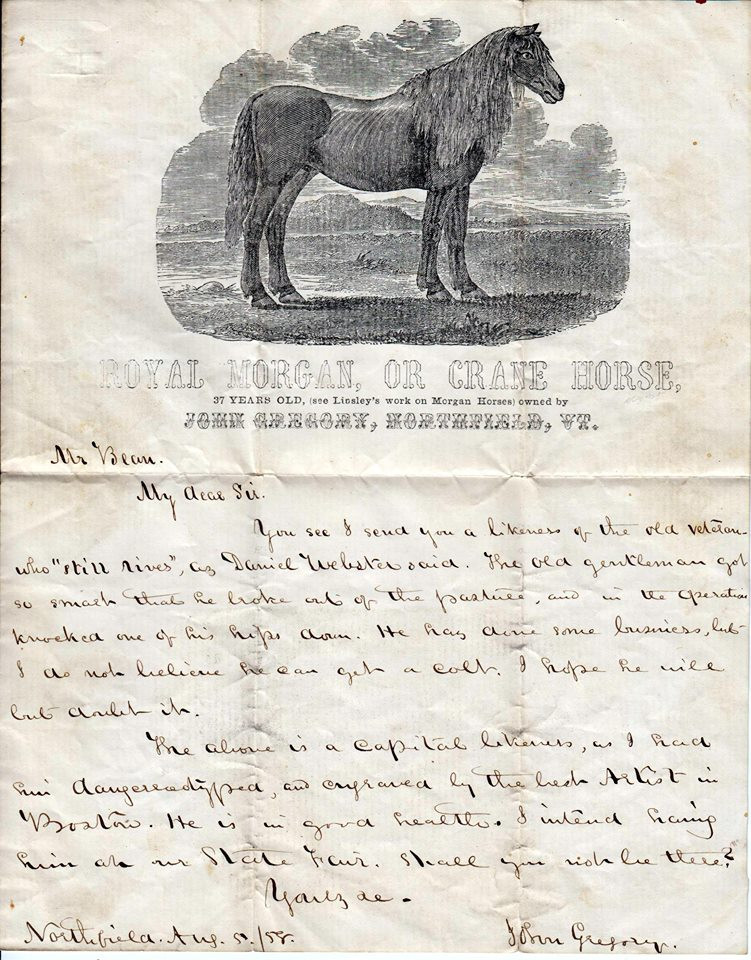 ROYAL MORGAN, OR CRANE HORSE,
37 YEARS OLD, (see Linsley's work on Morgan Horses) owned by
JOHN GREGORY, NORTHFIELD, VT.
Mr Bean.
My dear Sir.
You see I send you a likeness of the old veteran
who "still lives", as Daniel Webster said. The old gentleman got
so smart that he broke out of the pasture, and in the operation
knocked one of his hips down. He has done some business, but
I do not believe he can get a colt. I hope he will
but doubt it.
The above is a capital likeness, as I had
him daugereotyped, and engraved by the best Artist in
Boston. He is in good health. I intend having
him at our State Fair. Shall you not be there?
Yours &c.
Northfield. Aug. 5./58.
John Gregory.